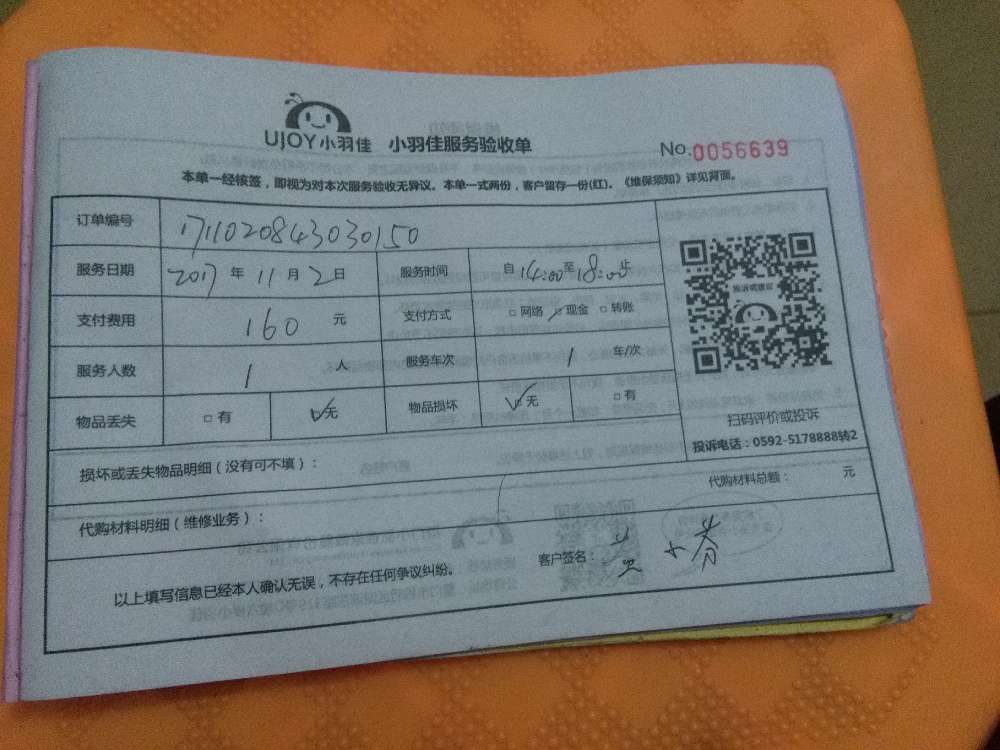 UJOY小羽佳 小羽佳服务验收单 No.0056639
本单一经核签，即视为对本次服务验收无异议。本单一式两份，客户留存一份(红)。《维保须知》详见背面。
订单编号 1711020843030150
服务日期 2017年11月2日 服务时间 自14:00至18:00止
支付费用 160元 支付方式 □网络 □现金 □转账
服务人数 1人 服务车次 1车/次
物品丢失 □有 □无 物品损坏 □无 □有
投诉或建议
扫码评价或投诉
投诉电话：0592-5178888转2
损坏或丢失物品明细（没有可不填）：
代购材料明细（维修业务）： 代购材料总额： 元
以上填写信息已经本人确认无误，不存在任何争议纠纷。 客户签名：